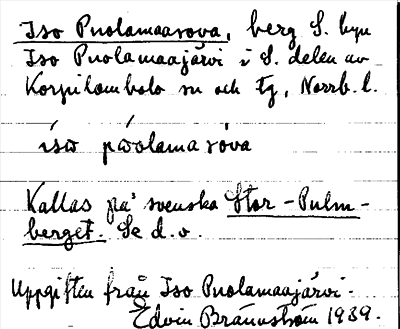 Iso Puolamaasova, berg S. byn
Iso Puolamaajärvi i S. delen av
Korpilombolo sn och tg, Norrb. l.
ísω pẃolama sóva
Kallas på svenska Stor-Pulm-
berget. Se d.o.
Uppgiften från Iso Puolamaajärvi.
Edvin Brännström 1939.